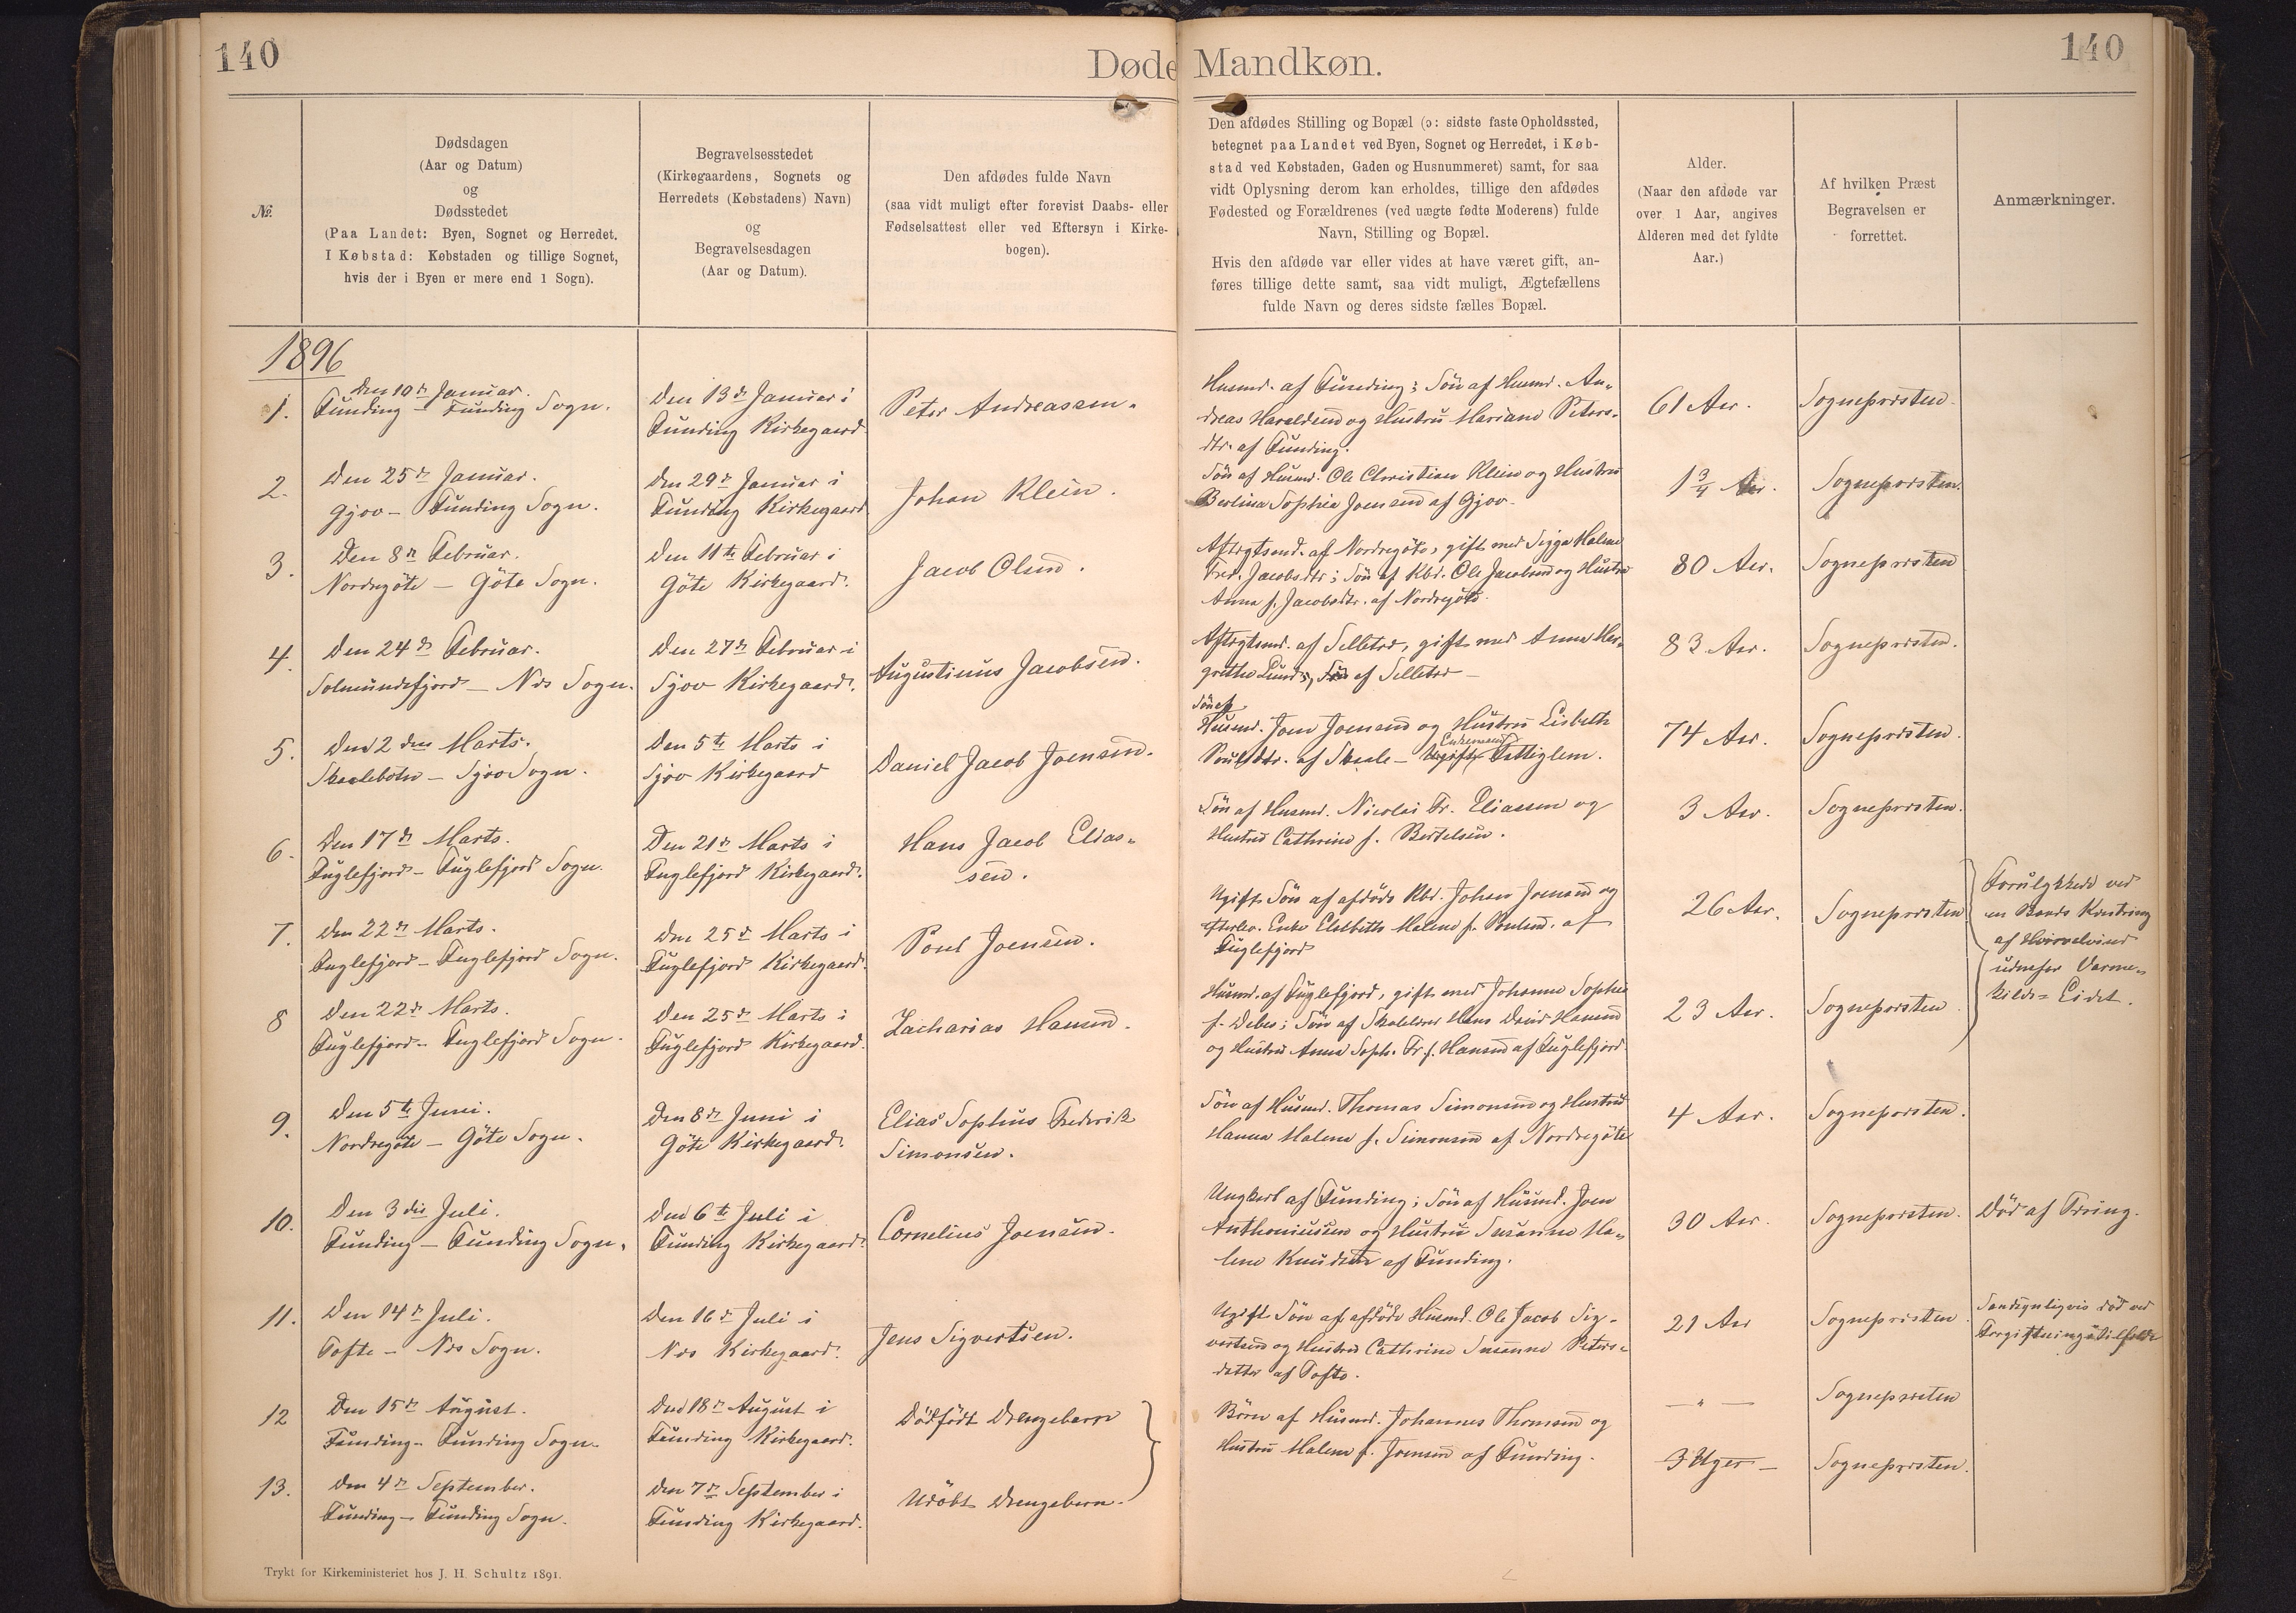 140
Døde Mandkøn.
140
№.
Dødsdagen
(Aar og Datum)
og
Dødsstedet
(Paa Landet: Byen, Sognet og Herredet.
I Købstad: Købstaden og tillige Sognet,
hvis der i Byen er mere end 1 Sogn).
Begravelsesstedet
(Kirkegaardens, Sognets og
Herredets (Købstadens) Navn)
og
Begravelsesdagen
(Aar og Datum).
Den afdødes fulde Navn
(saa vidt muligt efter forevist Daabs- eller
Fødselsattest eller ved Eftersyn i Kirke-
bogen).
Den afdødes Stilling og Bopæl (ɔ: sidste faste Opholdssted,
betegnet paa Landet ved Byen, Sognet og Herredet, i Køb-
stad ved Købstaden, Gaden og Husnummeret) samt, for saa
vidt Oplysning derom kan erholdes, tillige den afdødes
Fødested og Forældrenes (ved uægte fødte Moderens) fulde
Navn, Stilling og Bopæl.
Hvis den afdøde var eller vides at have været gift, an-
føres tillige dette samt, saa vidt muligt, Ægtefællens
fulde Navn og deres sidste fælles Bopæl.
Alder.
(Naar den afdøde var
over 1 Aar, angives
Alderen med det fyldte
Aar.)
Af hvilken Præst
Begravelsen er
forrettet.
Anmærkninger.
1896
1.
Den 10de Januar.
Funding - Funding Sogn.
Den 13de Januar i
Funding Kirkegaard
Peter Andreassen.
Husmd. af Funding; Søn af Husmd. An-
dreas Haraldsen og Hustru Mariane Peters-
dtr. af Funding.
61 Aar.
Sognepræsten.
2.
Den 25de Januar.
Gjov - Funding Sogn.
Den 29de Januar i
Funding Kirkegaard
Johan Klein.
Søn af Husmd. Ole Christian Klein og Hustru
Berlina Sophie Joensen af Gjov.
1 3/4 Aar.
Sognepræsten.
3.
Den 8de Februar.
Nordregöte - Göte Sogn.
Den 11te Februar i
Göte Kirkegaard.
Jacob Olsen.
Aftægtsmd. af Nordregöte, gift med Sigga Malene
Fred. Jacobsdtr; Søn af Kbd. Ole Jacobsen og Hustru
Anna f. Jacobsdtr. af Nordregöte.
80 Aar.
Sognepræsten
4.
Den 24de Februar.
Solmundefjord - Næs Sogn.
Den 27de Februar i
Sjov Kirkegaard.
Augustinus Jacobsen.
Aftægtsmd. af Selleträ, gift med Anna Mar-
grethe Lund, af Selleträ -
83 Aar.
Sognepræsten.
5.
Den 2den Marts.
Skaalebotn - Sjov Sogn.
Den 5te Marts i
Sjov Kirkegaard
Daniel Jacob Joensen.
Søn af
Husmd. Joen Joensen og Hustru Lisbeth
Enkemand
Poulsdtr. af Skaale - Ugift Fattiglem.
74 Aar.
Sognepræsten.
6.
Den 17de Marts.
Fuglefjord - Fuglefjord Sogn.
Den 21de Marts i
Fuglefjord Kirkegaard.
Hans Jacob Elias-
sen.
Søn af Husmd. Nicolai Fr. Eliassen og
Hustru Cathrine f. Bertelsen.
3 Aar.
Sognepræsten.
7.
Den 22de Marts.
Fuglefjord - Fuglefjord Sogn.
Den 25de Marts i
Fuglefjord Kirkegaard.
Poul Joensen.
Ugift Søn af afdøde Kbd. Johan Joensen og
efterlev. Enke Elsebeth Malene f. Poulsen. af
Fuglefjord
26 Aar.
Sognepræsten
Forulykkede ved
en Baads Kæntring
af Hvirvelvind
udenfor Varme-
kilde - Eidet.
8
Den 22de Marts.
Fuglefjord - Fuglefjord Sogn.
Den 25de Marts i
Fuglefjord Kirkegaard.
Zacharias Hansen.
Husmd. af Fuglefjord, gift med Johanne Sophie
f. Debes; Søn af Skolelærer Hans David Hansen
og Hustru Anna Soph. Fr. f. Hansen af Fuglefjord
23 Aar.
Sognepræsten
9.
Den 5te Juni.
Nordregöte - Göte Sogn.
Den 8de Juni i
Göte Kirkegaard.
Elias Sophus Frederik
Simonsen.
Søn af Husmd. Thomas Simonsen og Hustru
Hanna Malene f. Simonsen af Nordregöte
4 Aar.
Sognepræsten.
10.
Den 3die Juli.
Funding - Funding Sogn.
Den 6te Juli i
Funding Kirkegaard.
Cornelius Joensen.
Ungkarl af Funding; Søn af Husmd. Joen
Anthoniussen og Hustru Susanne Ma-
lene Knudsen af Funding.
30 Aar.
Sognepræsten.
Död af Tæring.
11.
Den 14de Juli.
Tofte - Næs Sogn.
Den 16de Juli i
Næs Kirkegaard.
Jens Sigvertsen.
Ugift Søn af afdøde Husmd. Ole Jacob Sig-
vertsen og Hustru Cathrine Susanne Peters-
datter af Tofte.
21 Aar
Sognepræsten
Sandsynligvis död ved
Forgiftningstilfælde
12
Den 15de August.
Funding - Funding Sogn.
Den 18de August i
Funding Kirkegaard.
Dødfødt Drengebarn
Börn af Husmd. Johannes Thomsen og
Hustru Malene f. Joensen af Funding.
— " —
Sognepræsten
13.
Den 4de September.
Funding - Funding Sogn.
Den 7de September i
Funding Kirkegaard.
Udöbt Drengebarn.
3 Uger -
Sognepræsten.
Trykt for Kirkeministeriet hos J. H. Schultz 1891.